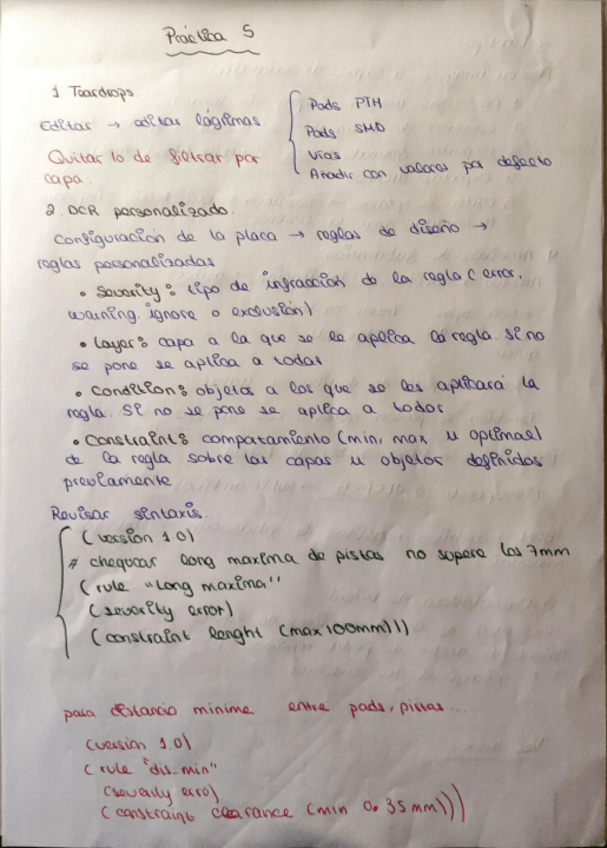 Práctica 5
1 Teardrops.
Editar → editar lágrimas
Quitar lo de filtrar por
capa.
Pads PTH
Pads SMD
Vías
Añadir con valores por defecto
2. DCR personalizado.
Configuración de la placa → reglas de diseño →
reglas personalizadas
• Severity: tipo de infracción de la regla (error,
warning, ignore o exclusión)
• Layer: capa a la que se le aplica la regla. Si no
se pone se aplica a todas
• Condition: objetos a los que se les aplicará la
regla. Si no se pone se aplica a todos
• Constraint: comportamiento (min, max u optimal)
de la regla sobre las capas u objetos definidos
previamente
Revisar sintaxis.
(version 1.0)
# chequear long maxima de pistas no supere los 7mm
(rule "Long maxima"
(severity error)
(constraint lenght (max 100mm)))
para distancia minima entre pads, pistas...
(version 1.0)
(rule "dis_min"
(severity erro)
(constraint clearance (min 0.35mm)))